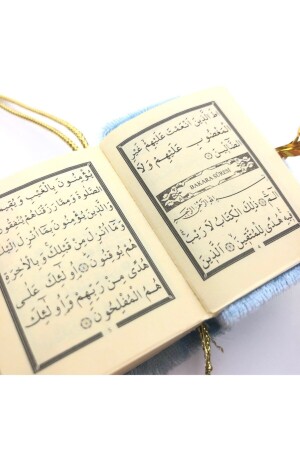 طَ الَّذٖينَ اَنْعَمْتَ عَلَيْهِمْ غَيْرِ
الْمَغْضُوبِ عَلَيْهِمْ وَلَا
الضَّٓالّٖينَ
BAKARA SÛRESİ
الٓمٓ ذٰلِكَ الْكِتَابُ لَا رَيْبَ
فٖيهِ هُدًى لِلْمُتَّقٖينَ اَلَّذٖينَ
يُؤْمِنُونَ بِالْغَيْبِ وَيُقٖيـ
الصَّلٰوةَ وَمِمَّا رَزَقْنَاهُمْ يُنْفِقُونَ
وَالَّذٖينَ يُؤْمِنُونَ بِمَٓا اُنْزِلَ اِلَيْكَ
وَمَٓا اُنْزِلَ مِنْ قَبْلِكَ وَبِالْاٰخِرَةِ
هُمْ يُوقِنُونَ اُولٰٓئِكَ عَلٰى
هُدًى مِنْ رَبِّهِمْ وَاُولٰٓئِكَ
هُمُ الْمُفْلِحُونَ